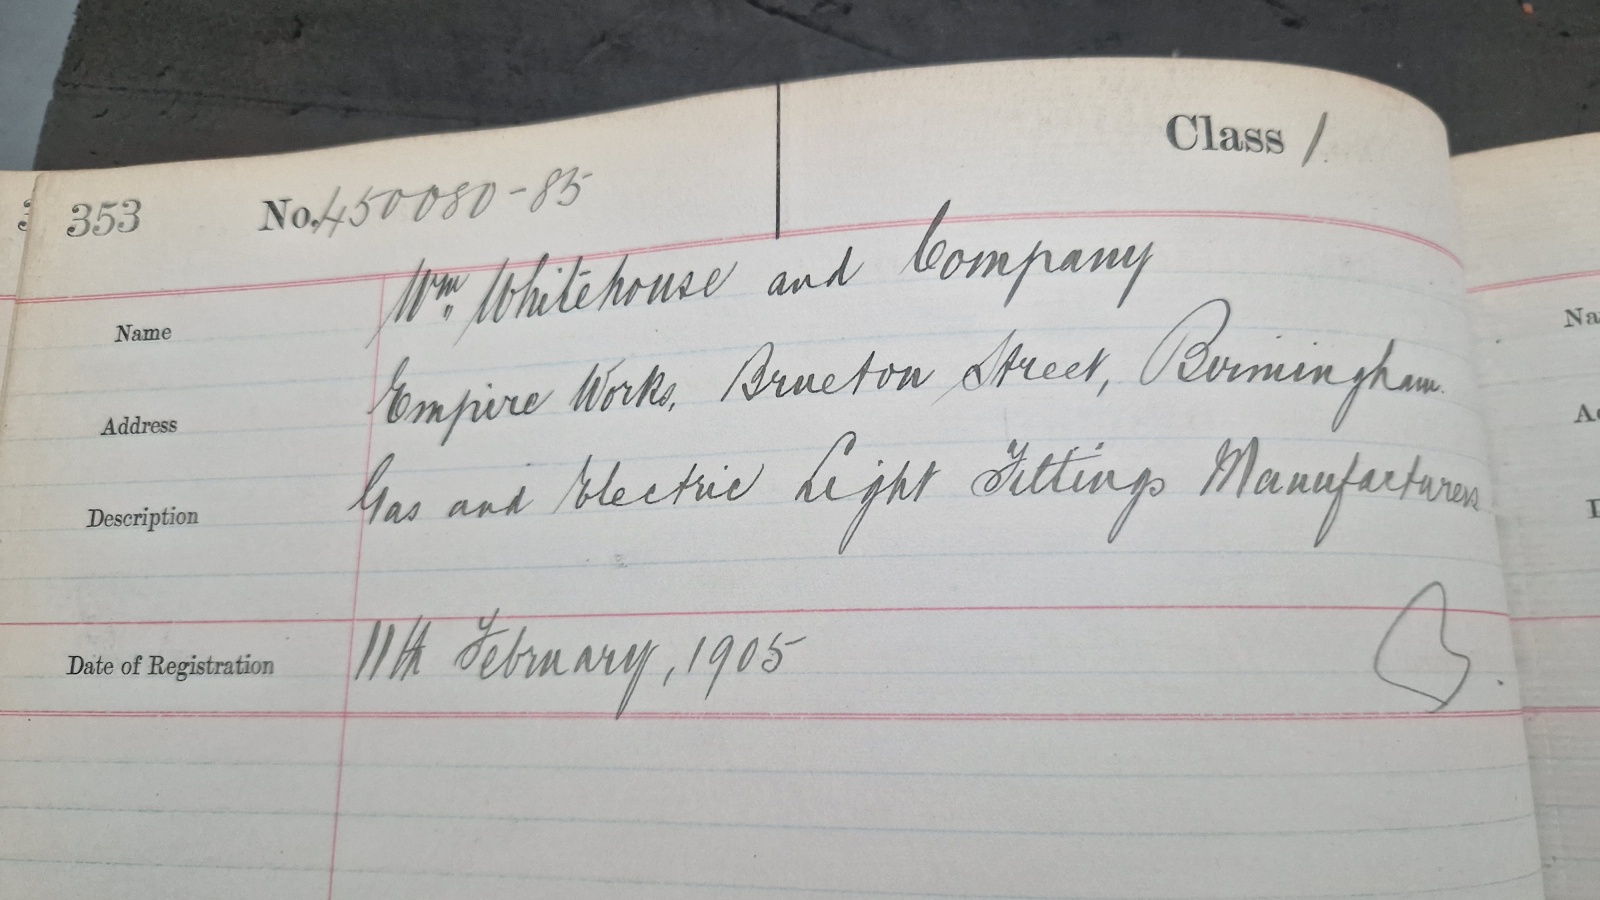 353 No. 450080-85 Class 1
Name Wm. Whitehouse and Company
Address Empire Works, Brueton Street, Birmingham.
Description Gas and Electric Light Fittings Manufacturers
Date of Registration 11th February, 1905